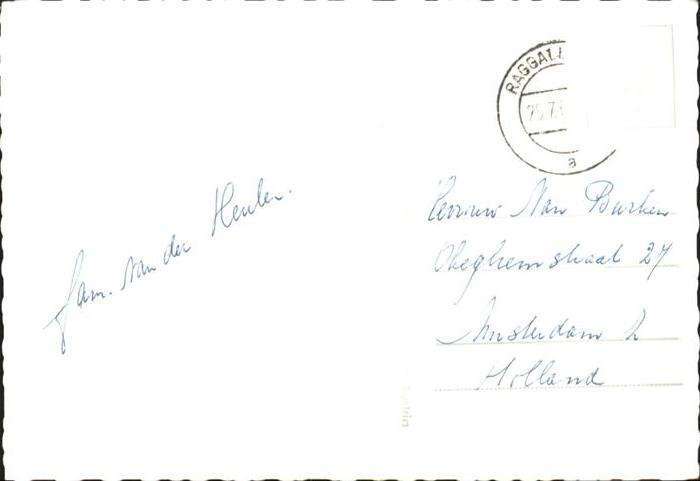 RAGGAL
25.7.
a
fam. van der Heulen.
Mevrouw Van Burken
Okeghemstraat 27
Amsterdam Z
Holland